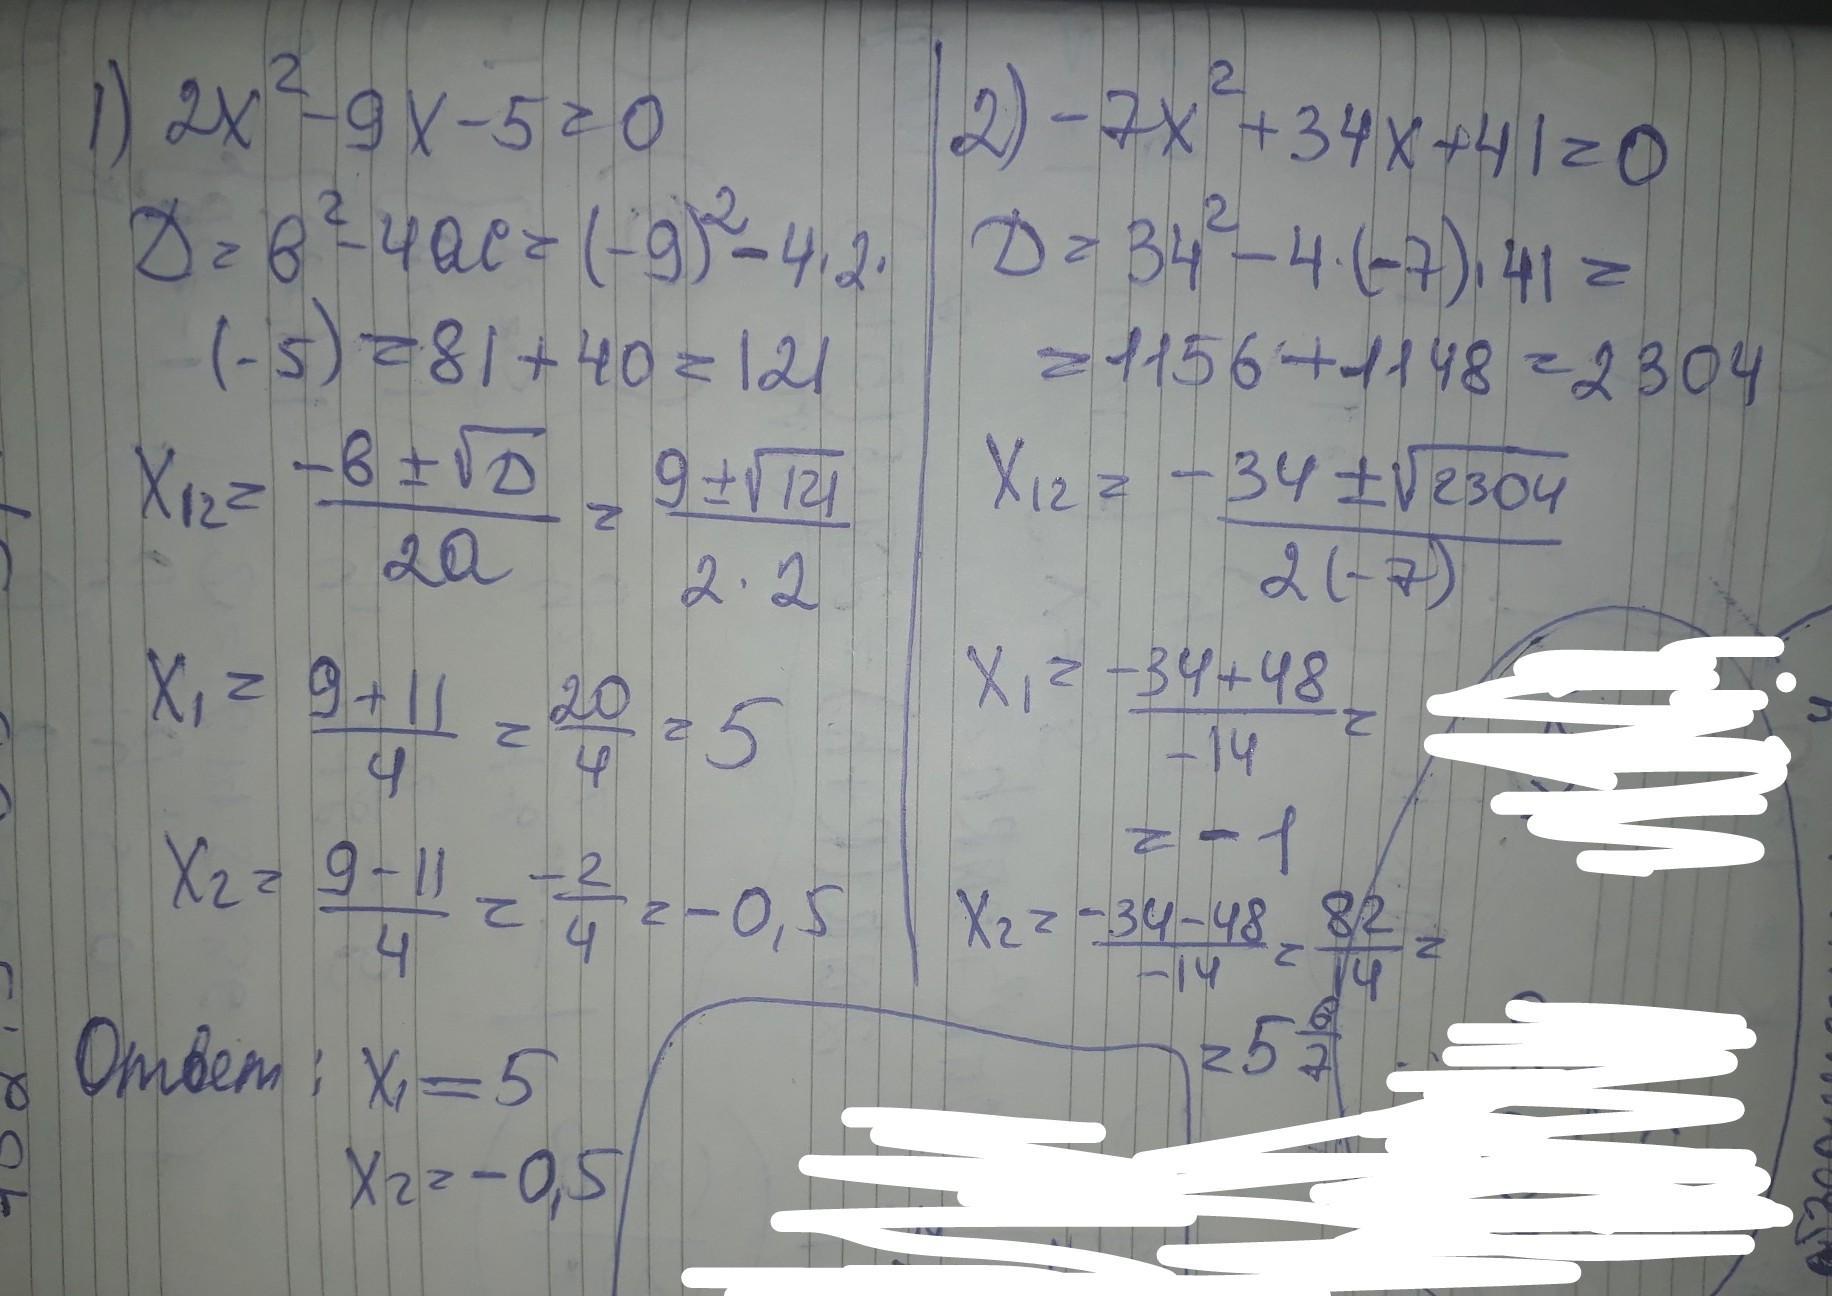 1) 2x² - 9x - 5 = 0
D = b² - 4ac = (-9)² - 4 · 2 ·
(-5) = 81 + 40 = 121
x₁₂ = (-b ± √D)/(2a) = (9 ± √121)/(2 · 2)
x₁ = (9 + 11)/4 = 20/4 = 5
x₂ = (9 - 11)/4 = -2/4 = -0,5
Ответ: x₁ = 5
x₂ = -0,5
2) -7x² + 34x + 41 = 0
D = 34² - 4 · (-7) · 41 =
= 1156 + 1148 = 2304
x₁₂ = (-34 ± √2304)/(2(-7))
x₁ = (-34 + 48)/(-14) =
= -1
x₂ = (-34 - 48)/(-14) = 82/14 =
= 5 6/7